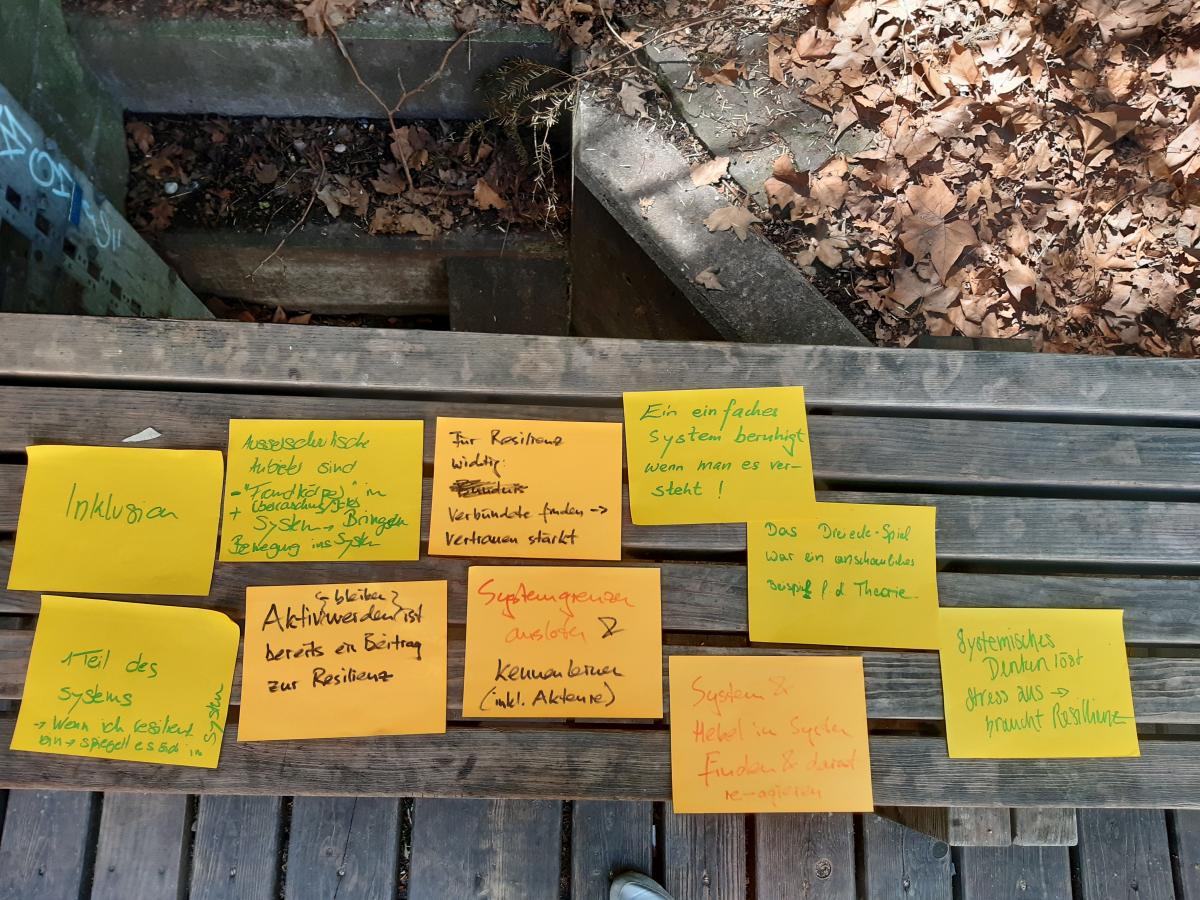 Inklusion
Ausserschulische
Anbieter sind
- "Fremdkörper" in
+ überraschendes
System → Bringen
Bewegung ins System
Für Resilienz
wichtig:
Verbündete finden →
Vertrauen stärkt
Ein einfaches
System beruhigt
wenn man es ver-
steht !
Das Dreieck-Spiel
war ein anschauliches
Beispiel f d Theorie.
1 Teil des
Systems
→ Wenn ich resilient
bin → spiegelt es sich im
System
(bleiben)
Aktivwerden ist
bereits ein Beitrag
zur Resilienz
Systemgrenzen
ausloten &
kennenlernen
(inkl. Akteure)
System &
Hebel im System
Finden & darauf
re-agieren
Systemisches
Denken löst
Stress aus →
braucht Resillienz